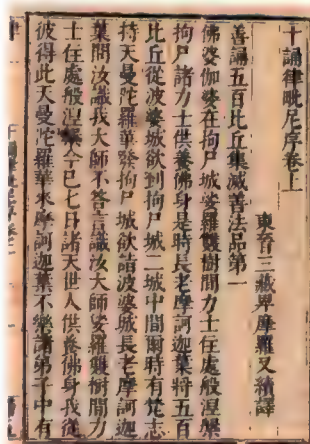 十誦律毗尼序卷上
東晉三藏卑摩羅叉續譯
善誦五百比丘集滅善法品第一
佛婆伽婆在拘尸城娑羅雙樹間力士住處般涅槃
拘尸諸力士供養佛身是時長老摩訶迦葉將五百
比丘從波婆城欲到拘尸城二城中間爾時有梵志
持天曼陀羅華發拘尸城欲詣波婆城長老摩訶迦
葉問汝識我大師不答言識汝大師娑羅雙樹間力
士住處般涅槃今已七日諸天世人供養佛身我從
彼得此天曼陀羅華來摩訶迦葉不樂諸弟子中有